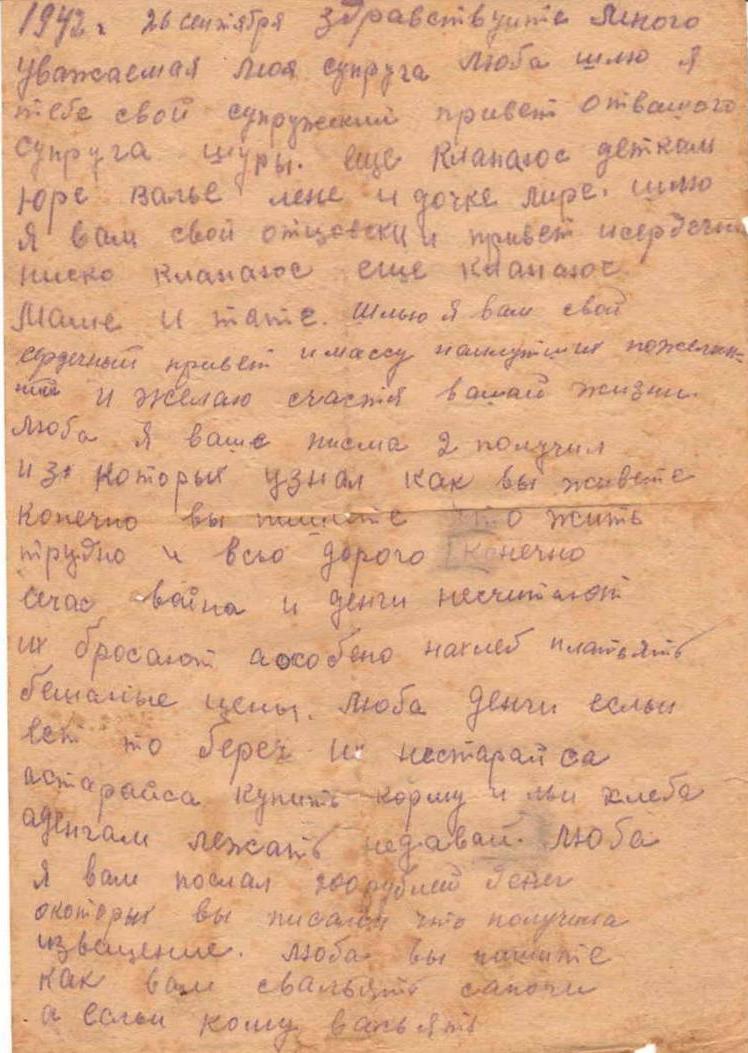 1942 г 26 сентября здравствуите Много
уважаемая Моя супруга Люба шлю я
тебе свой супружеский привет от вашого
супруга шуры. еще Кланаюс деткам
юре Валье лене и дочке лире. шлю
я вам свой отцовски и привет и сердечн
ниско кланаюс еще кланаюс.
Маме и тяте. Шлью я вам свой
сердечный привет и массу наилутших пожелан-
ий и желаю счастя вашай жизни.
Люба Я ваше писма 2 получил
из которых узнал как вы живете
конечно вы пишите что жить
трудно и всьо дорого конечно
счас вайна и денги несчитают
их бросают а особено нахлеб платьять
бешаные цены. Люба денги есльи
ест то береч их нестарайса
астарайса купить корму и льи хлеба
аденгам лежать недавай. Люба
я вам послал 200 рублей денег
окоторых вы писали что получила
извещение. Люба вы пишите
как вам свальять сапоги
а есльи кому вальять